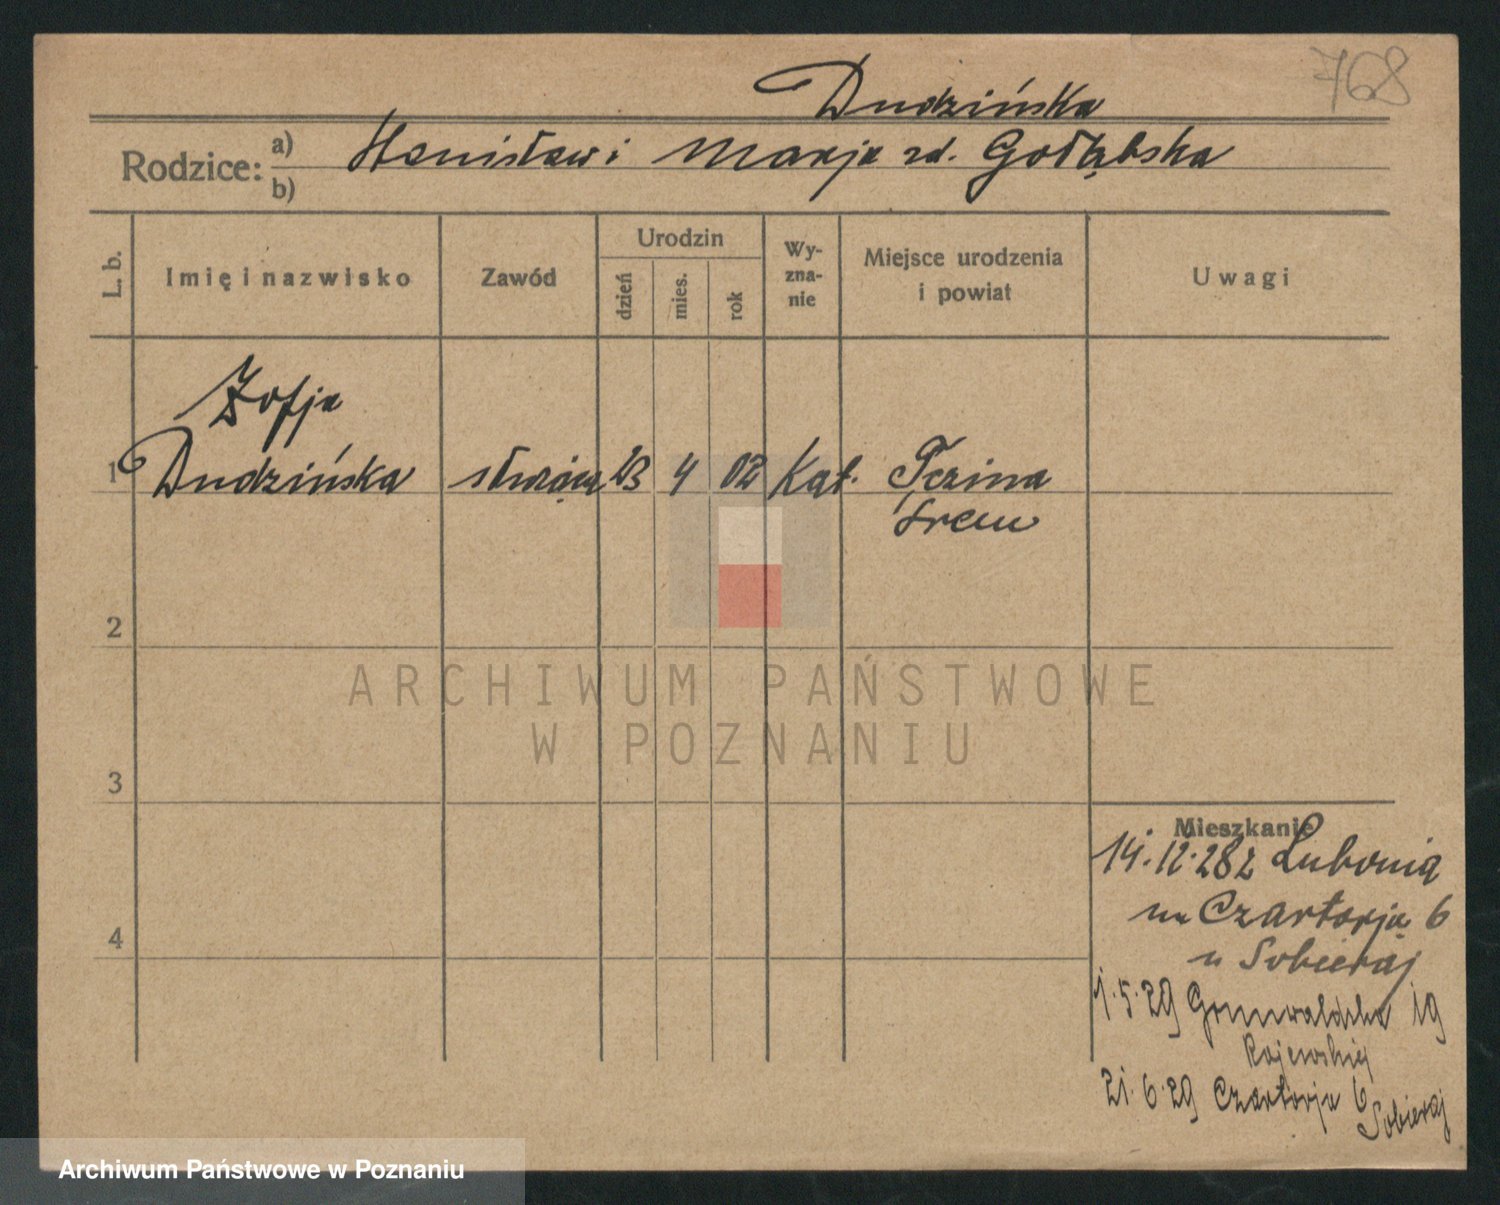 768
Dudzińska
Rodzice: a) Stanisław i Marja zd. Gołąbska
b)
L. b. Imię i nazwisko Zawód Urodzin dzień mies. rok Wy-zna-nie Miejsce urodzenia i powiat Uwagi
Zofja
1 Dudzińska służąca 23 4 02 Kat.
Śrem
2
ARCHIWUM PAŃSTWOWE
W POZNANIU
3
Mieszkanie
14.12.28 z Lubonia
4 na Czartorja 6
u Sobieraj
1.5.29 Grunwaldzka 19
Rajewskiej
21.6.29 Czartorja 6
Sobieraj
Archiwum Państwowe w Poznaniu